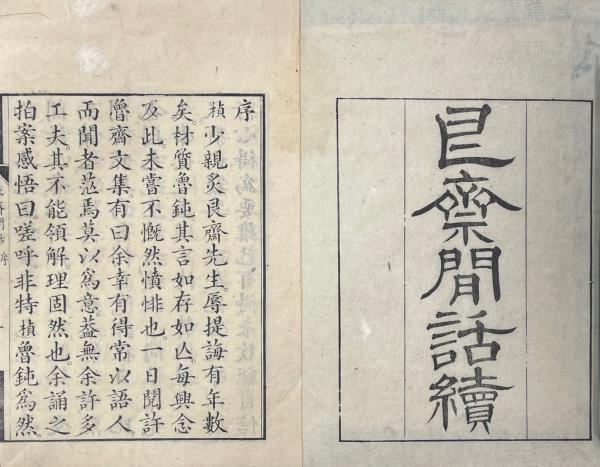 艮齋閒話續
序
楨少親炙艮齋先生。辱提誨有年數
矣。材質魯鈍其言如存如亾。每興念
及此。未嘗不慨然憤悱也。一日閱許
魯齋文集有曰余幸有得常以語人。
而聞者茫焉莫以爲意。葢無余許多
工夫。其不能領解。理固然也。余誦之
拍案感悟曰。嗟呼。非特楨魯鈍爲然。
序